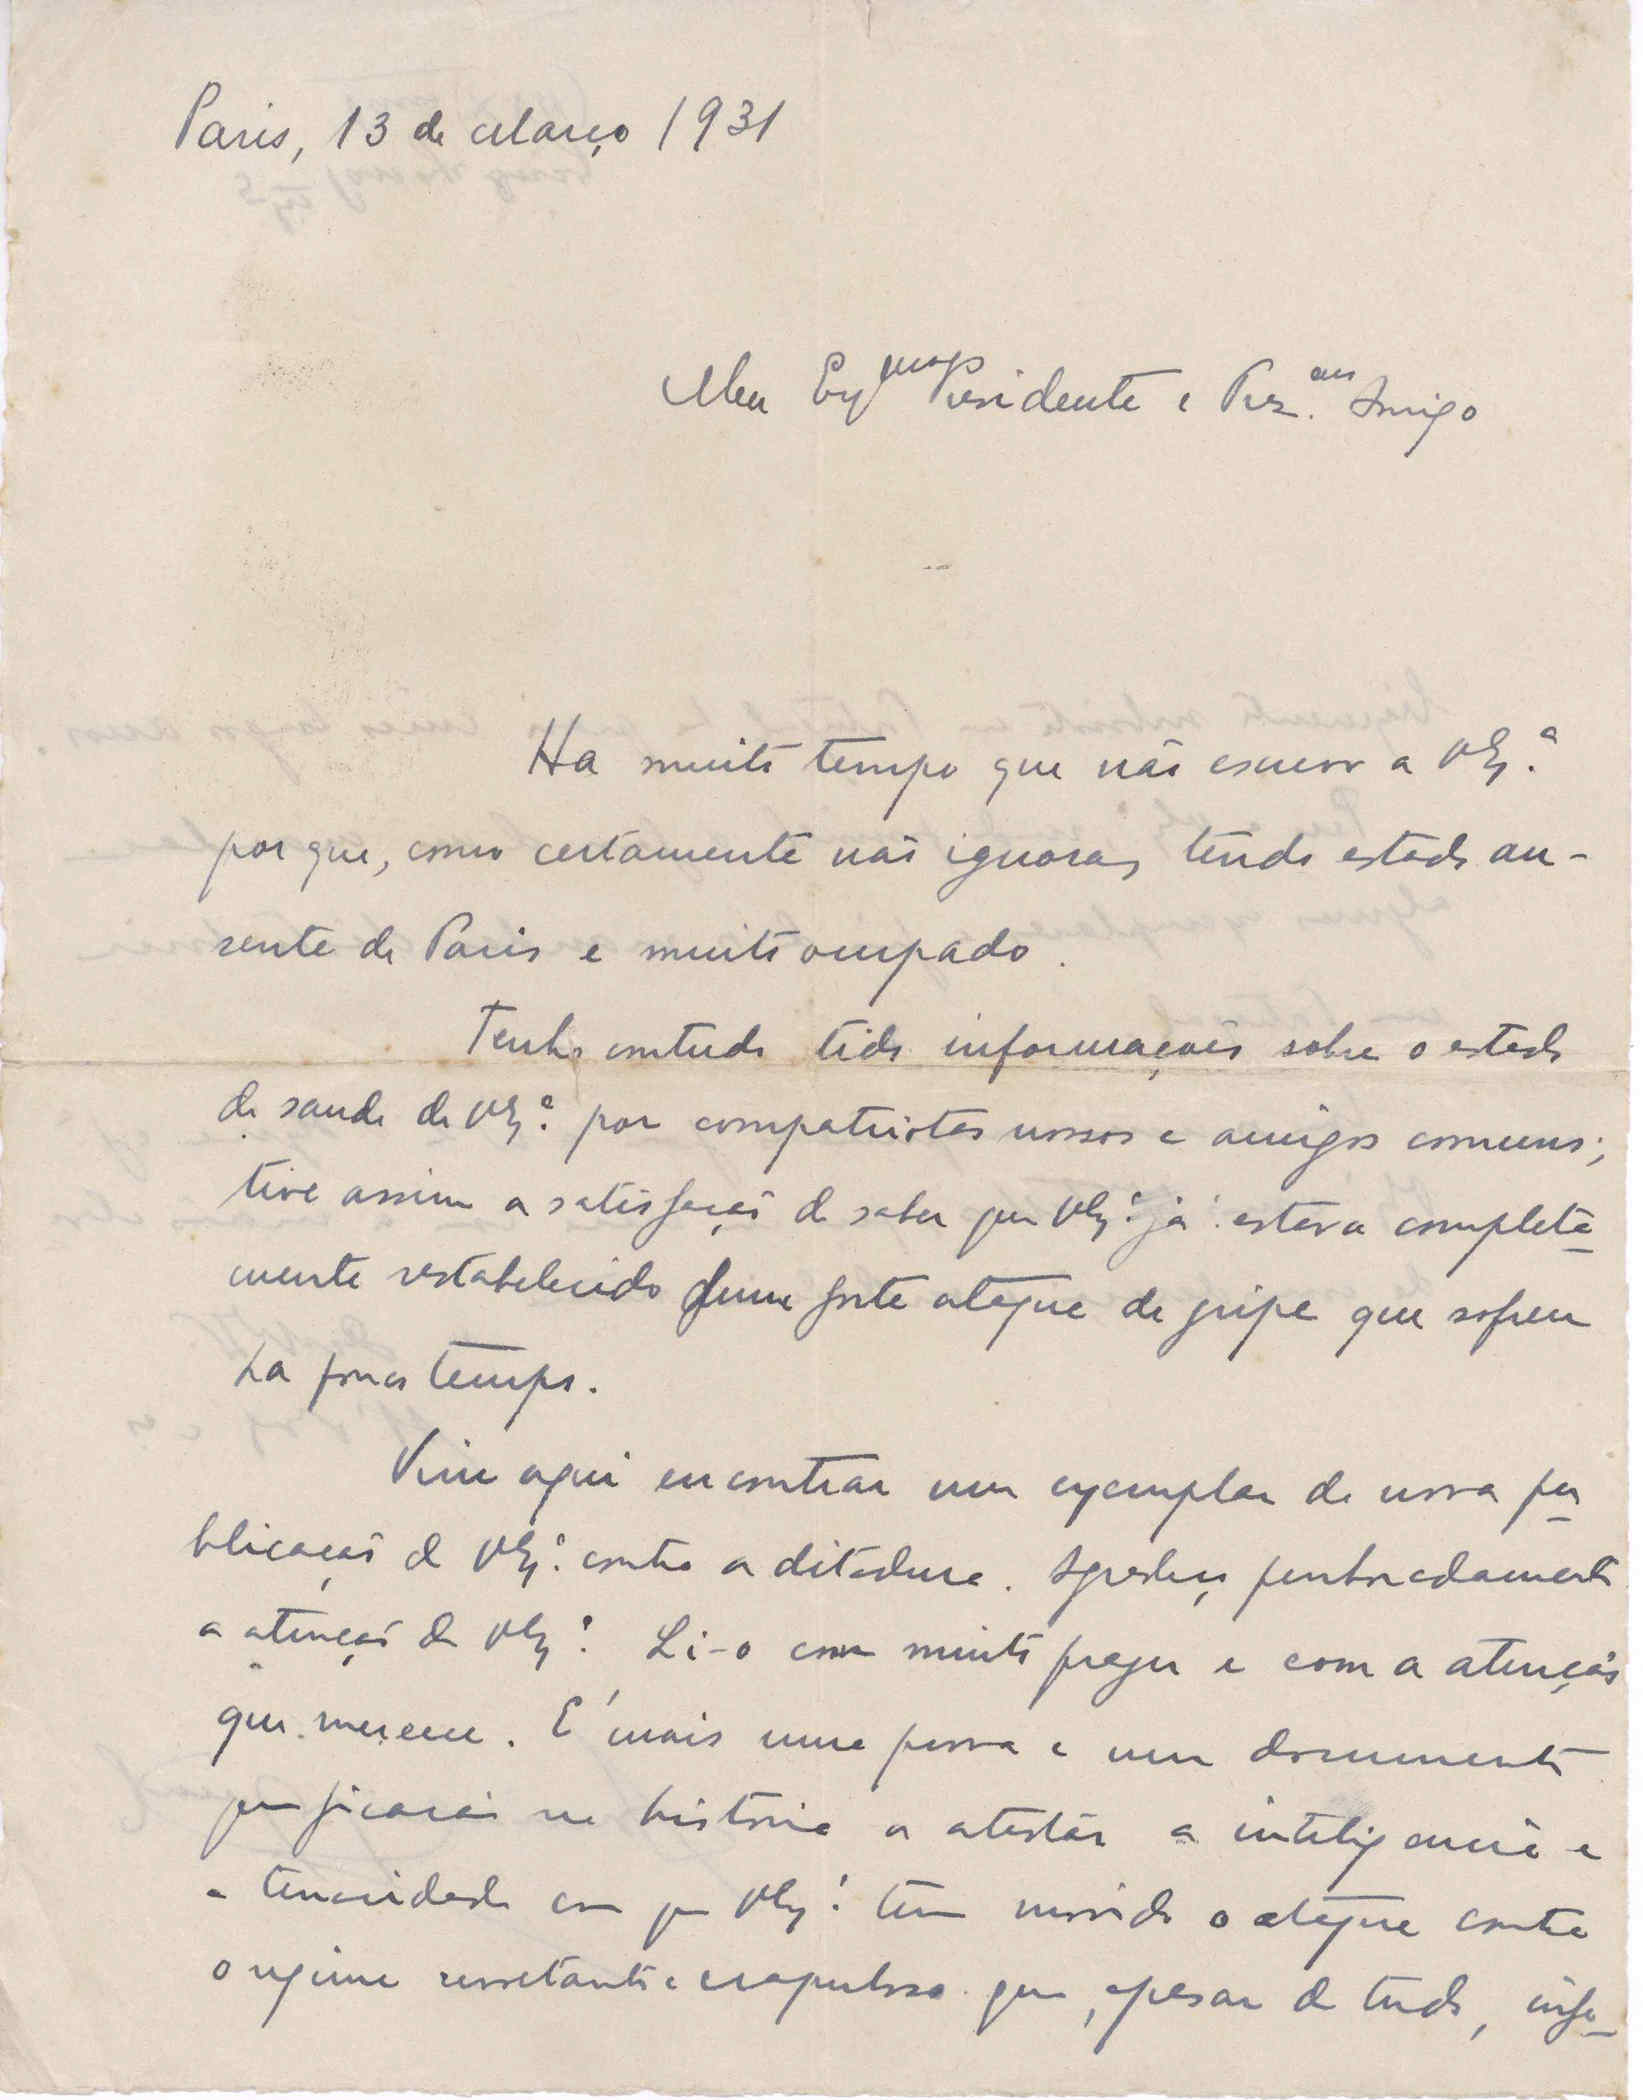 Paris, 13 de Março 1931
Meu Ex.mo Presidente e Prez.do Amigo
Ha muito tempo que não escrevo a V. Ex.ª
por que, como certamente não ignora, tenho estado au-
sente de Paris e muito ocupado.
Tenho contudo tido informações sobre o estado
de saude de V. Ex.ª por compatriotas nossos e amigos comuns;
tive assim a satisfação de saber que V. Ex.ª já estava completa-
mente restabelecido dum forte ataque de gripe que sofreu
ha pouco tempo.
Vim aqui encontrar um exemplar da nova pu-
blicação de V. Ex.ª contra a ditadura. Agradeço penhoradamente
a atenção de V. Ex.ª. Li-o com muito prazer e com a atenção
que merece. É mais uma prova e um documento
que ficará na história a atestar a inteligencia e
a tenacidade com que V. Ex.ª tem movido o ataque contra
o regime revoltante e crapuloso que, apesar de tudo, infe-